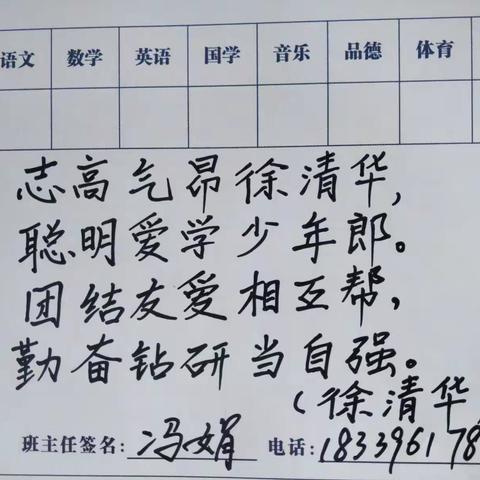 语文 数学 英语 国学 音乐 品德 体育
志高气昂徐清华,
聪明爱学少年郎。
团结友爱相互帮,
勤奋钻研当自强。
(徐清华
班主任签名: 冯娟 电话: 183396178